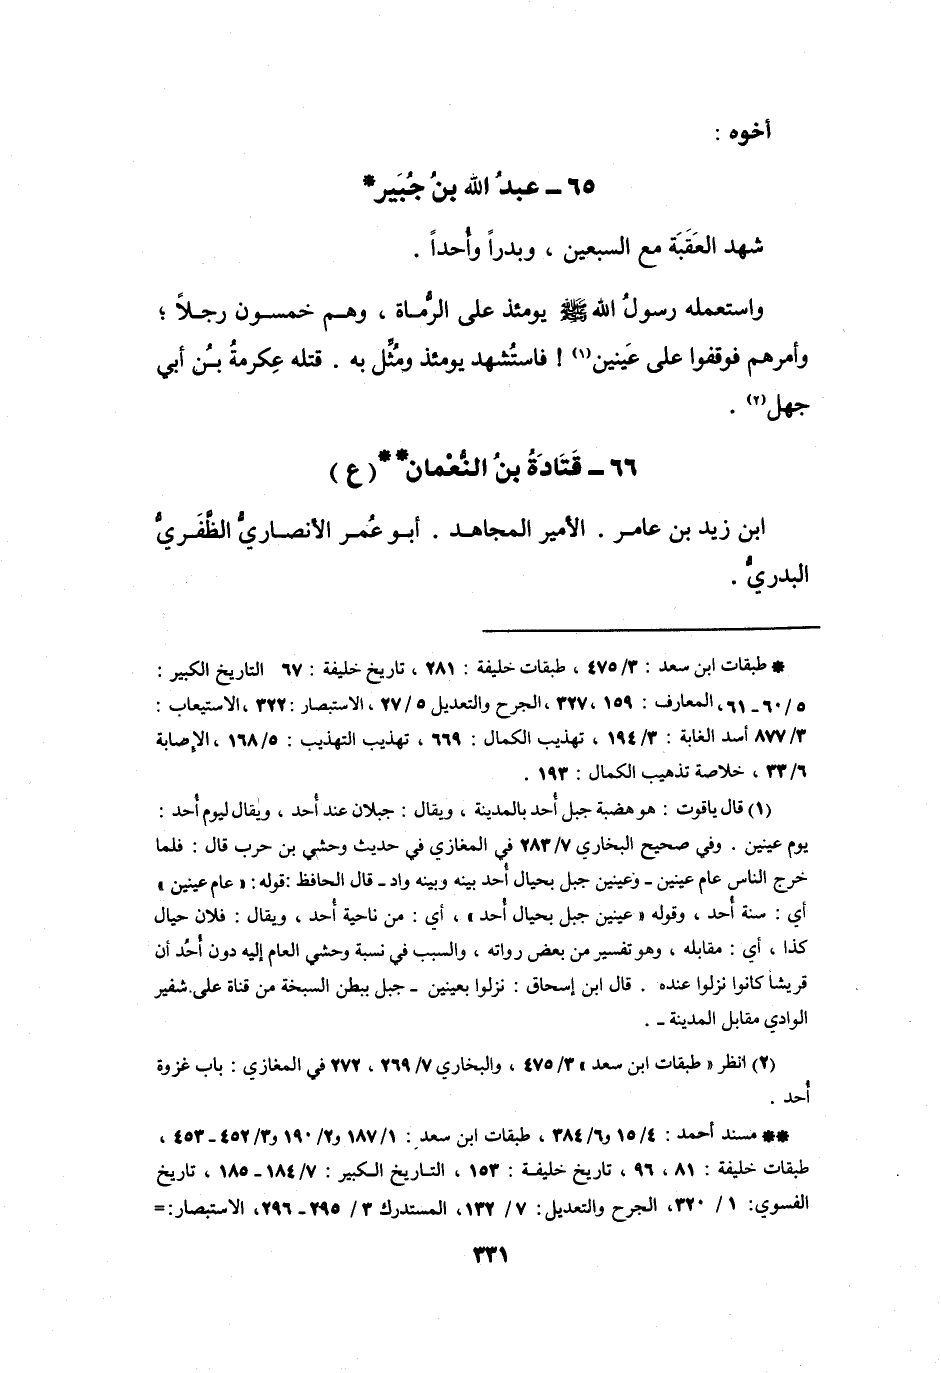 أخوه :
٦٥ ـ عبدُ الله بنُ جُبَير*
شهد العَقَبَة مع السبعين ، وبدراً وأُحداً .
واستعمله رسولُ الله ﷺ يومئذ على الرُّماة ، وهـم خمسـون رجـلاً ؛
وأمرهم فوقفوا على عَينين(١) ! فاستُشهد يومئذ ومُثِّل به . قتله عِكرمةُ بـُن أبي
جهل(٢) .
٦٦ ـ قَتَادَةُ بنُ النُّعْمان** (ع)
ابن زيد بن عامـر . الأمير المجاهـد . أبـو عُمـر الأنصـاريُّ الظَّفَـريُّ
البدريُّ .
* طبقات ابن سعد : ٤٧٥/٣ ، طبقات خليفة : ٢٨١ ، تاريخ خليفة : ٦٧ التاريخ الكبير :
٥/ ٦٠ ـ ٦١، المعارف : ١٥٩ ، ٣٢٧ ،الجرح والتعديل ٥ /٢٧ ، الاستبصار :٣٢٢ ،الاستيعاب :
٨٧٧/٣ أسد الغابة : ١٩٤/٣ ، تهذيب الكمال : ٦٦٩ ، تهذيب التهذيب : ١٦٨/٥ ، الإصابة
٣٣/٦ ، خلاصة تذهيب الكمال : ١٩٣ .
(١) قال ياقوت : هو هضبة جبل أُحد بالمدينة ، ويقال : جبلان عند أُحد ، ويقال ليوم أُحد :
يوم عينين . وفي صحيح البخاري ٢٨٣/٧ في المغازي في حديث وحشي بن حرب قال : فلما
خرج الناس عام عينين ـ وعينين جبل بحيال أُحد بينه وبينه واد ـ قال الحافظ :قوله: « عام عينين »
أي : سنة أُحد ، وقوله « عينين جبل بحيال أُحد » ، أي : من ناحية أُحد ، ويقال : فلان حيال
كذا ، أي : مقابله ، وهو تفسير من بعض رواته ، والسبب في نسبة وحشي العام إليه دون أُحُد أن
قريشاً كانوا نزلوا عنده . قال ابن إسحاق : نزلوا بعينين ـ جبل ببطن السبخة من قناة على شفير
الوادي مقابل المدينة ـ .
(٢) انظر « طبقات ابن سعد » ٤٧٥/٣ ، والبخاري ٢٦٩/٧ ، ٢٧٢ في المغازي : باب غزوة
أُحد .
** مسند أحمد : ١٥/٤ و٣٨٤/٦ ، طبقات ابن سعد : ١٨٧/١ و١٩٠/٢ و٤٥٢/٣ ـ ٤٥٣ ،
طبقات خليفة : ٨١ ، ٩٦ ، تاريخ خليفـة : ١٥٣ ، التـاريخ الكبير : ١٨٤/٧ ـ ١٨٥ ، تاريخ
الفسوي: ١ / ٣٢٠، الجرح والتعديل: ٧ / ١٣٢، المستدرك ٣ / ٢٩٥ ـ ٢٩٦، الاستبصار:=
٣٣١